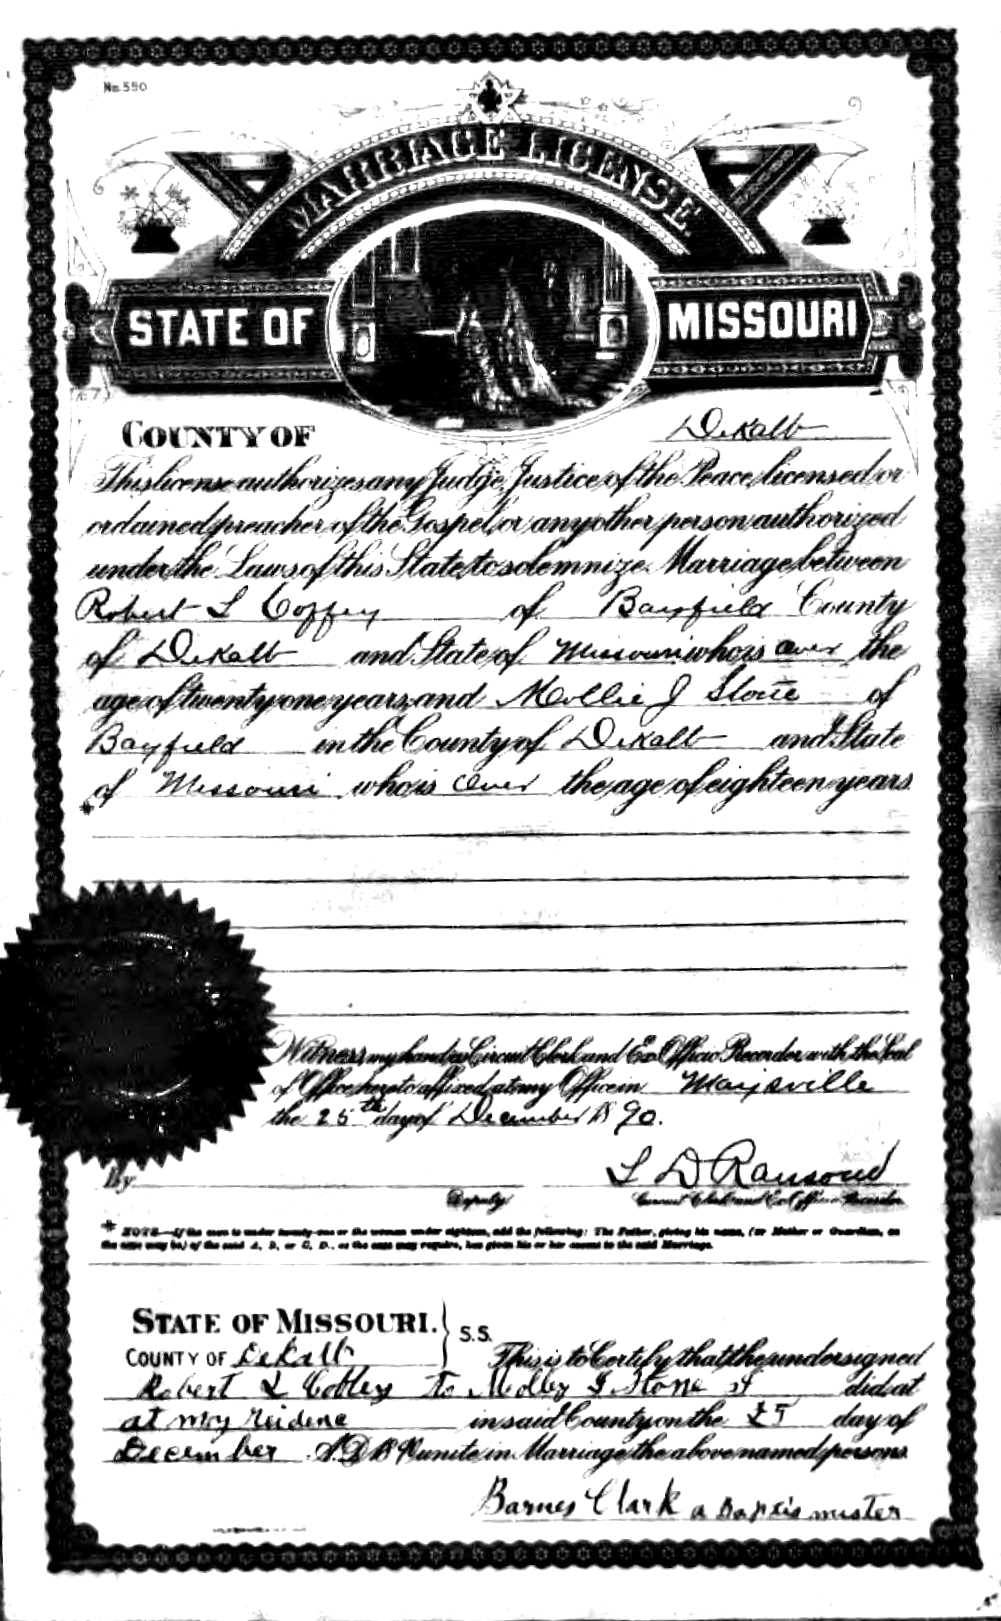 No. 550
MARRIAGE LICENSE
STATE OF MISSOURI
COUNTY OF Dekalb
This license authorizes any Judge, Justice of the Peace, licensed or
ordained preacher of the Gospel, or any other person authorized
under the Laws of this State, to solemnize Marriage between
Robert L Coffey of Bayfield County
of Dekalb and State of Missouri who is over the
age of twenty one years, and Mollie J Stone of
Bayfield in the County of Dekalb and State
of Missouri who is over the age of eighteen years
*
Witness my hand as Circuit Clerk and Ex Officio Recorder with the Seal
of Office hereto affixed at my Office in Maysville
the 25th day of December 1890.
By L D Ransom
Deputy Circuit Clerk and Ex Officio Recorder
* NOTE.—If the man is under twenty-one or the woman under eighteen, add the following: The Father, giving his name, (or Mother or Guardian, as
the case may be) of the said A. B. or C. D., as the case may require, has given his or her assent to the said Marriage.
STATE OF MISSOURI. } S.S.
COUNTY OF Dekalb This is to Certify that the undersigned
Robert L Cobley to Molley J Stone did at
at my reidene in said County on the 25 day of
December A.D. 18 unite in Marriage the above named persons.
Barnes Clark a Baptis mister